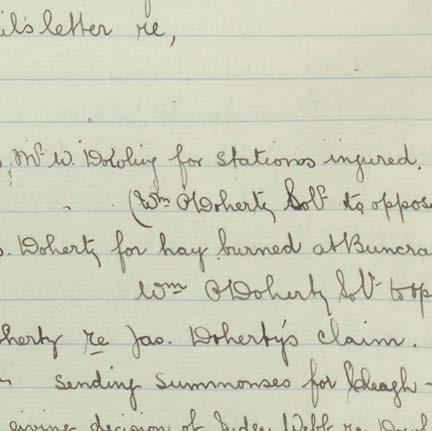 il's letter re,
Mr W. Dowling for stations injured.
(Wm O'Doherty Solr to oppose
s. Doherty for hay burned at Buncra
Wm O'Doherty Solr to op
oherty re Jas. Doherty's claim.
sending summonses for Cleagh -
giving decision of Judge Webb re